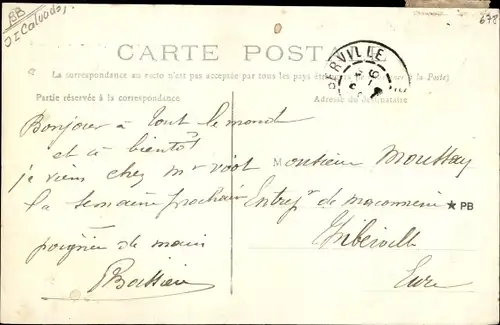 BB
Calvados
678
CARTE POSTALE
La correspondance au recto n'est pas acceptée par tous les pays
à la Poste)
Partie réservée à la correspondance
Adresse du destinataire
Bonjour à tout le monde
et à bientôt
je viens chez Mr
la semaine prochaine
poignée de main
Monsieur Moussay
Entrepr de maconnerie
★ PB
Thiberville
Eure